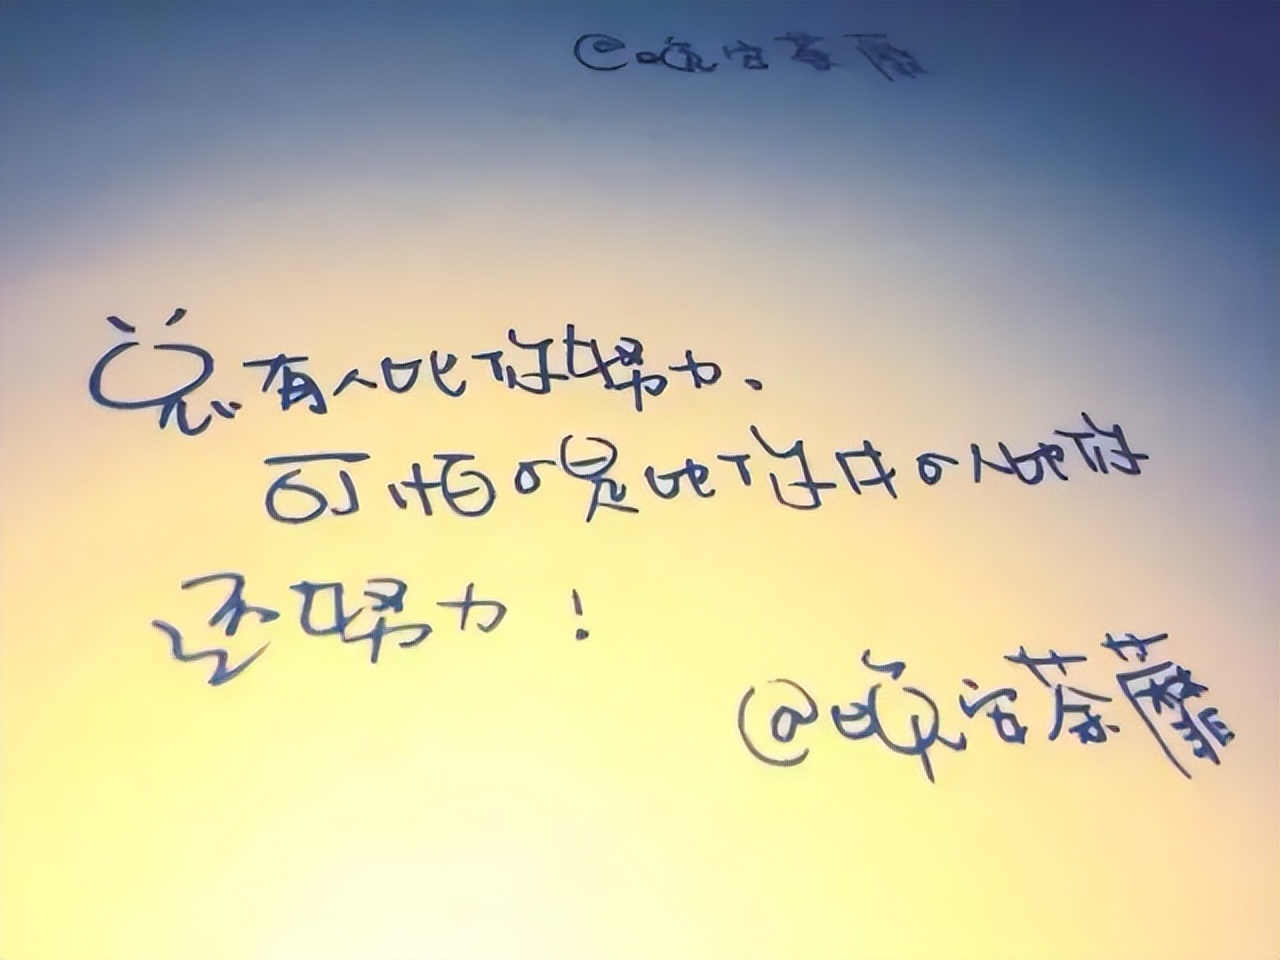 @晚安荼蘼
总有人比你努力.
可怕的是比你牛的人比你
还努力!
@晚安荼蘼